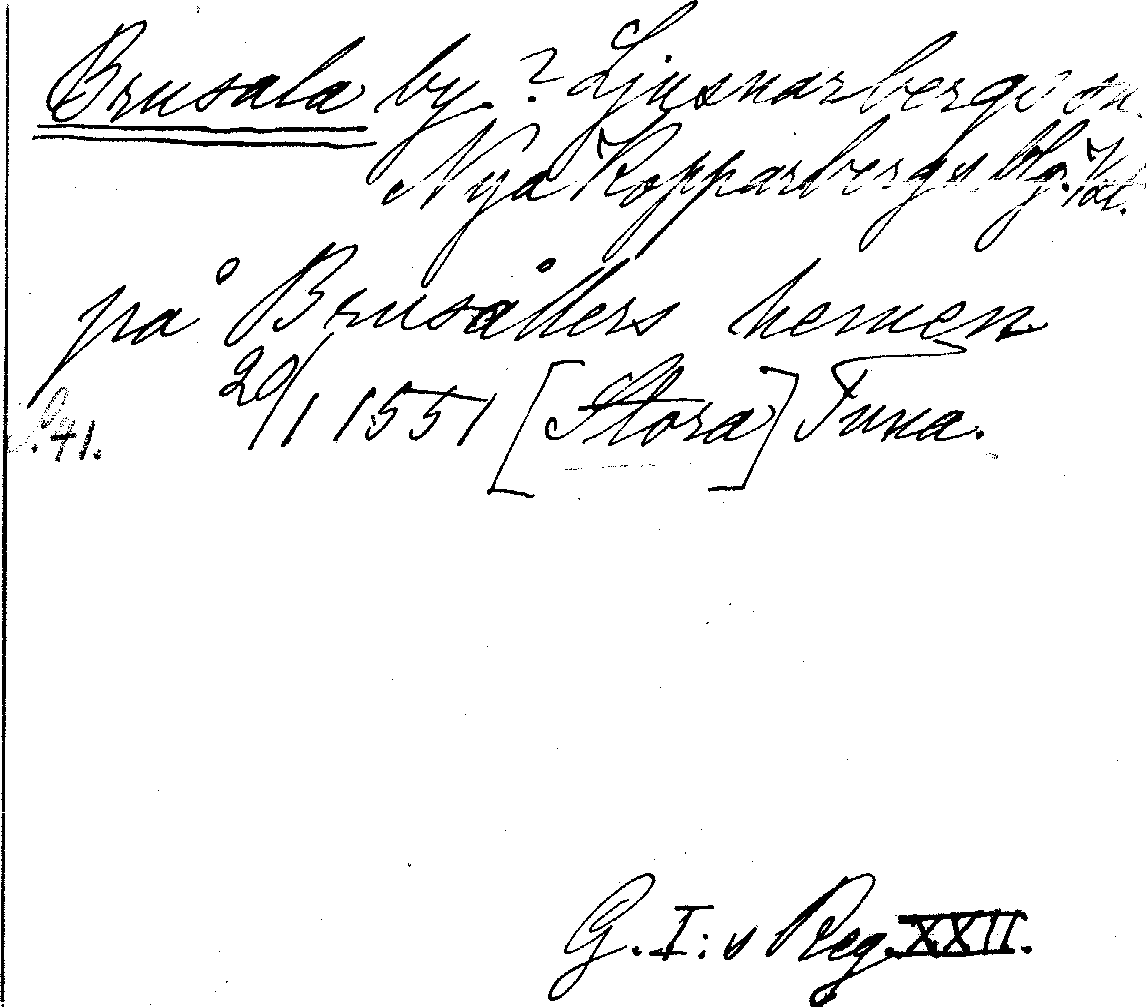 Brusala by.? Ljusnarbergs sn.
Nya Kopparbergs blg. Vstl.
på Brusållers hemen
S. 41. 20/1 1551 [Stora] Tuna.
G. I:s Reg. XXII.